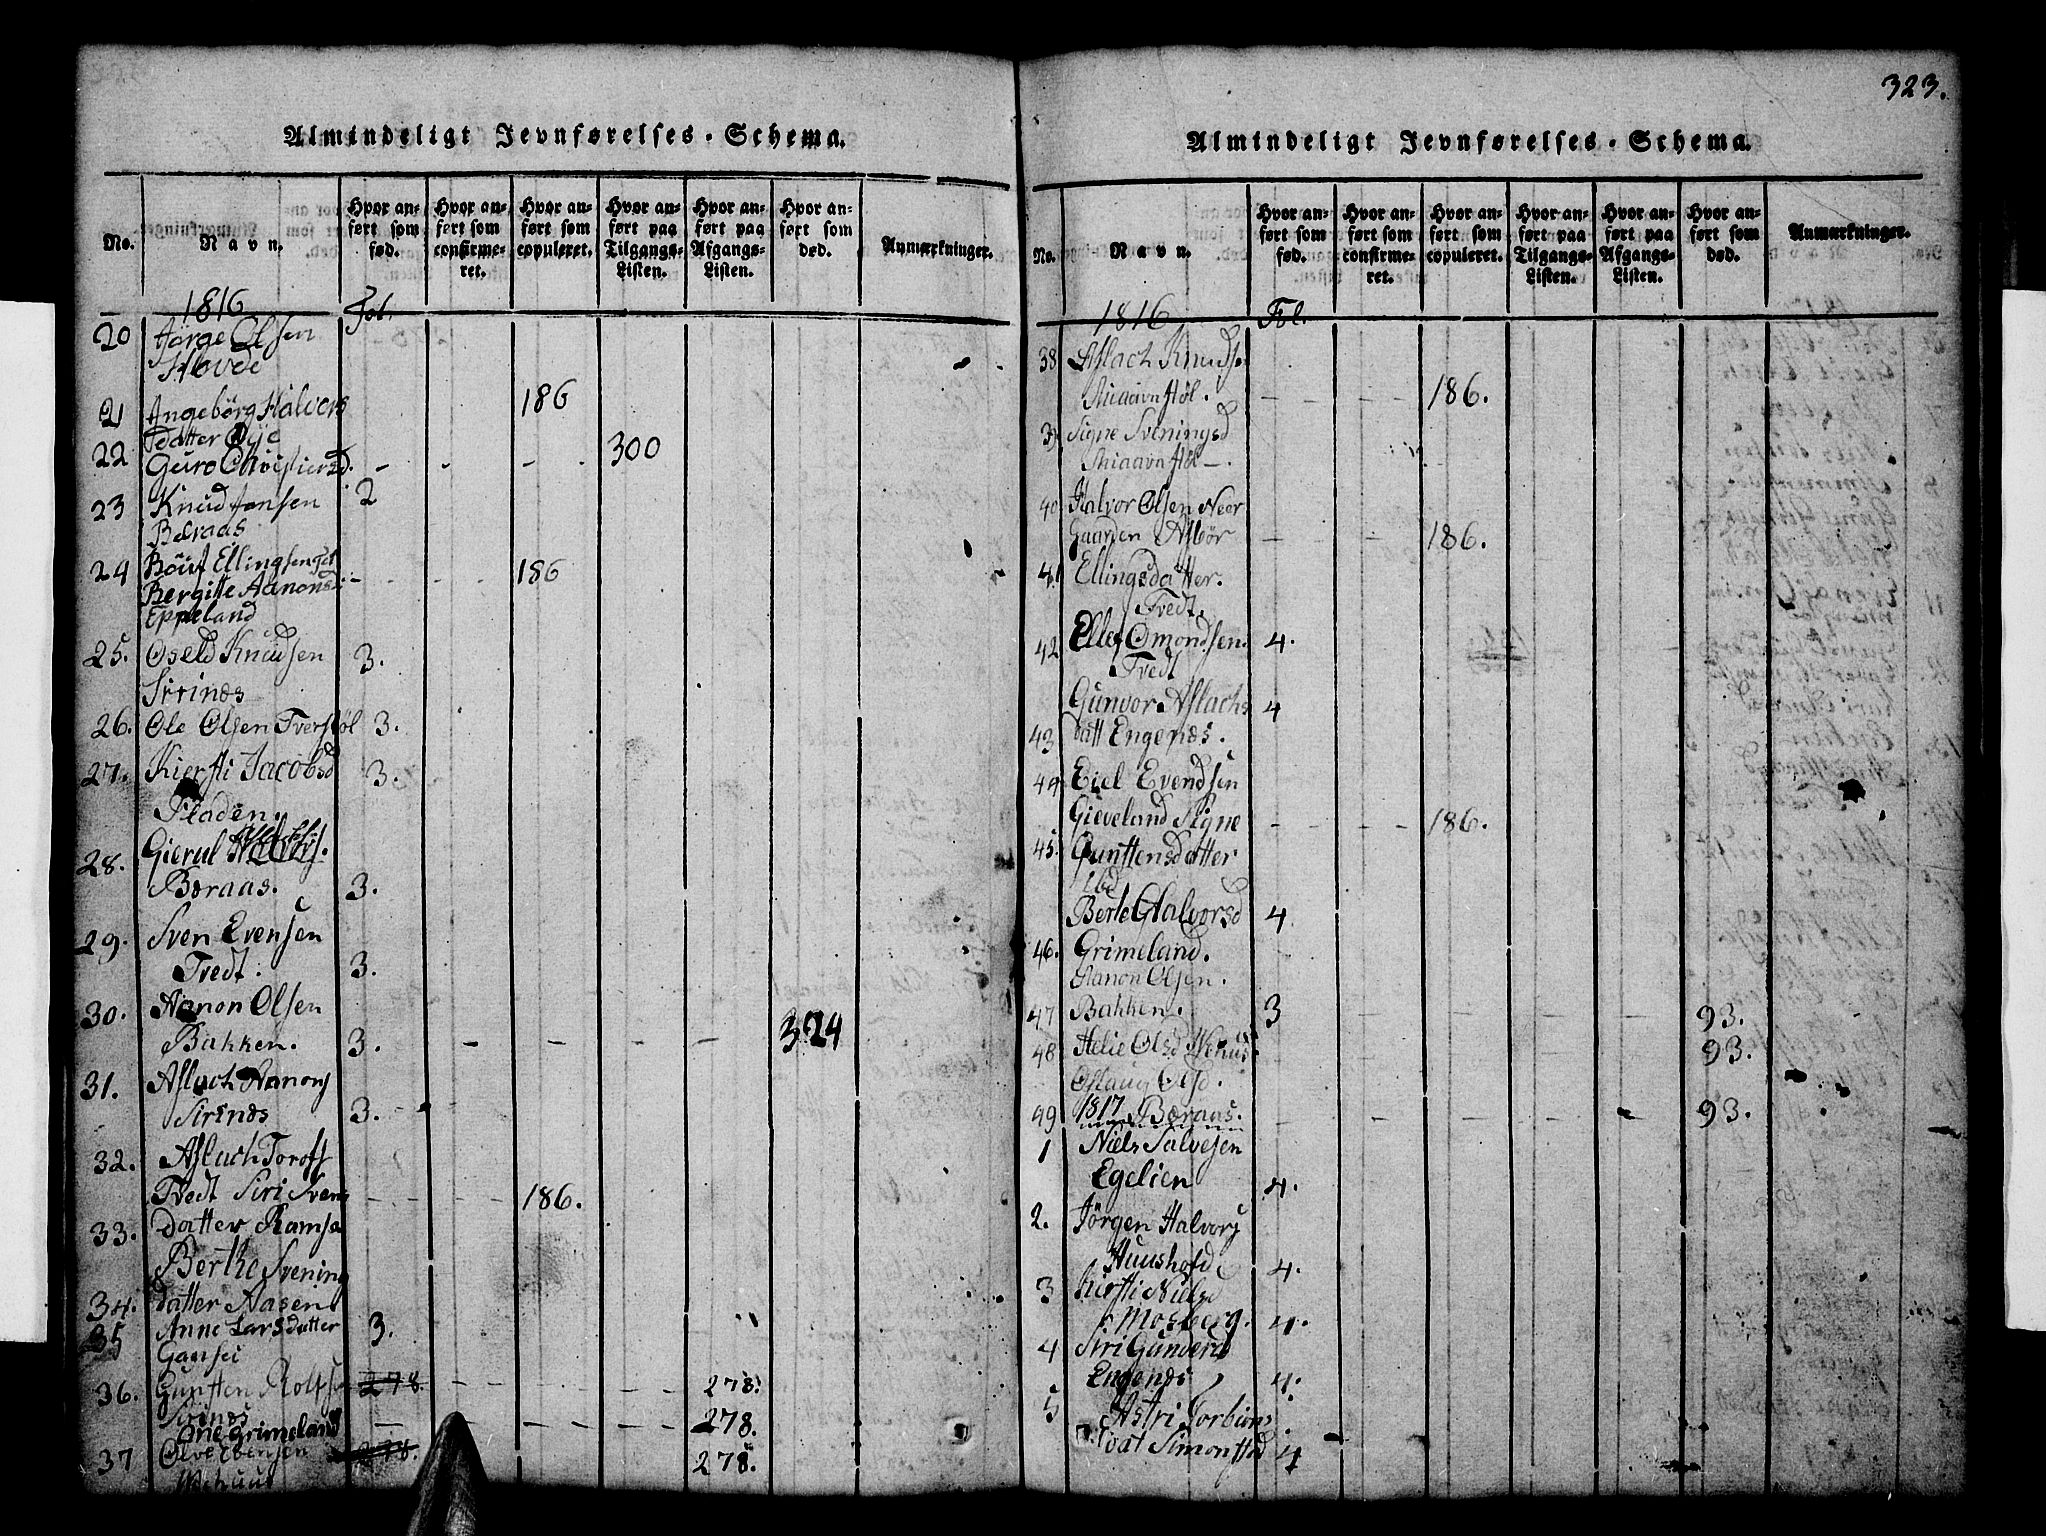 323.
Almindeligt Jevnførelses-Schema.
No.
Navn.
Hvor anført som fød.
Hvor anført som confirmeret.
Hvor anført som copuleret.
Hvor anført paa Tilgangs-Listen.
Hvor anført paa Afgangs-Listen.
Hvor anført som død.
Anmærkninger.
1816 Fol.
20 Jørge Olsen
Hovde
21 Angebörg Halvors 186
datter Øye
22 Guro Christiersd. - - - 300
23 Knud Jensen 2
Bæraas
24 Ellingsen
Bergitte Aanonsd: - - - 186
Eppeland
25. Oseld Knudsen 3.
Sirinæs
26. Ole Olsen Tverstøl 3.
27. Kiersti Jacobsd 3.
Fladen.
28. Gierul
Bæraas. 3.
29. Sven Evensen
Tvedt. 3.
30. Aanon Olsen
Bakken. 3. - - - - 324
31. Aslach Aanons
Sirinæs 3. - -
32. Aslach Torofs
Tvedt Siri Svens - - - 186.
33. datter Ramse
Berthe Svenings
34. datter Aasen
35 Anne Larsdatter 3.
Gansei
36. Gunsten Rolfsen 278. - - - 278.
Sirinæs
One Grimeland - - - 278.
37 Olve Ebensen 278. 278.
Almindeligt Jevnførelses-Schema.
No.
Navn.
Hvor anført som fød.
Hvor anført som confirmeret.
Hvor anført som copuleret.
Hvor anført paa Tilgangs-Listen.
Hvor anført paa Afgangs-Listen.
Hvor anført som død.
Anmærkninger.
1816 Fol.
38 Aslach Knuds.
Miaavasøl. - - - 186.
39 Signe Sveningsd
Miaavasøl -.
40 Halvor Olsen Neer
Gaarden Asbør - - - 186.
41 Ellingsdatter.
Tvedt.
42 Ellef Omondsen. 4.
Tvedt
Gunvor Aslachs 4
43 datt Engenæs.
44 Eiel Evendsen
Gieveland Signe - - - 186.
45. Gunstensdatter
ibd
Berte Halvorsd 4
46. Grimeland.
Aanon Olsen.
47 Bakken. 3 - - - - 93.
48 Helie Olsd Wehus 93.
Oslaug Olsd.
49 1817 Bæraas. - - - - - 93.
1 Niels Salvesen
Egelien 4.
2. Jørgen Halvors
Huushofd 4.
3 Kirsti Nielsd
Mosberg. 4.
4 Siri Gunders
Engenæs 4.
5 Astri Torbiøns
dat Simonstad 4